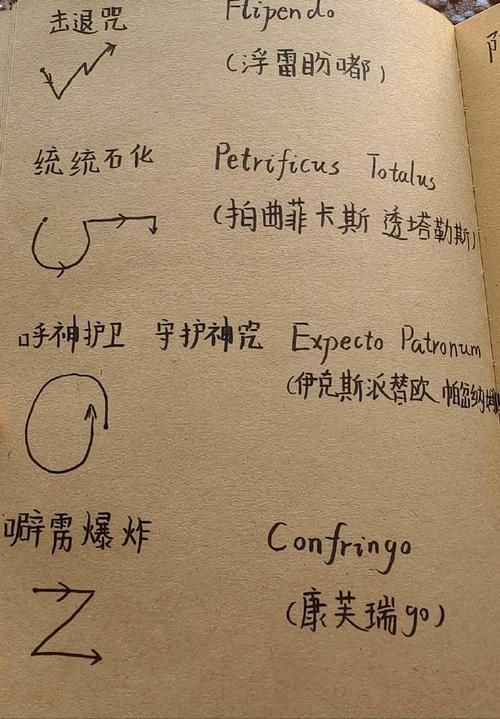 击退咒 Flipendo
(浮雷盼嘟)
统统石化 Petrificus Totalus
(拍曲菲卡斯 透塔勒斯)
呼神护卫 守护神咒 Expecto Patronum
(伊克斯派替欧 帕忽纳姆
噼雳爆炸 Confringo
(康芙瑞go)